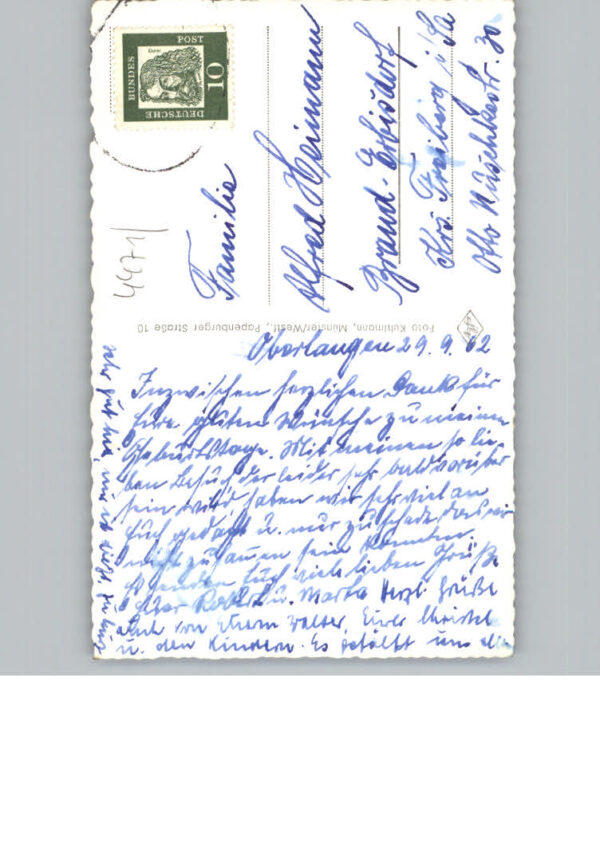 DEUTSCHE
BUNDES
POST
10
Dürer
4471
Familie
Alfred Heimann
Brand-Erbisdorf
Krs. Freiberg i/Sa
Otto Nuschkestr. 30
Foto Kuhlmann, Münster/Westf., Papenburger Straße 10
Oberlangen 29. 9. 62
Inzwischen herzlichen Dank für
Eure guten Wünsche zu meinem
Geburtstage. Mit meinem so lie-
ben Besuch, der leider sehr bald vorüber
sein wird, haben wir sehr viel an
Euch gedacht u. nur zu schade, daß wir
nicht zusammen sein konnten.
Es senden Euch viele lieben Grüße
Robert u. Marta Herzl. Grüße
auch von Eurem Walter, Eurer Christel
u. den Kindern. Es gefällt uns allen
sehr gut hier